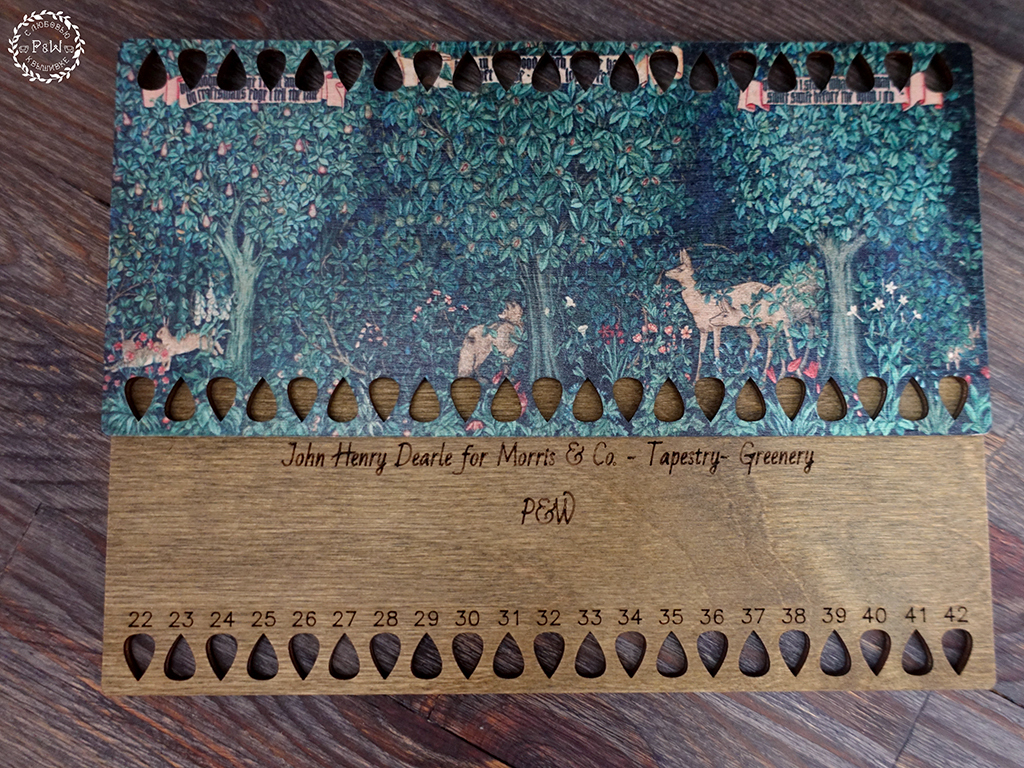 С ЛЮБОВЬЮ
P&W
К ВЫШИВКЕ
John Henry Dearle for Morris & Co. - Tapestry- Greenery
P&W
22 23 24 25 26 27 28 29 30 31 32 33 34 35 36 37 38 39 40 41 42